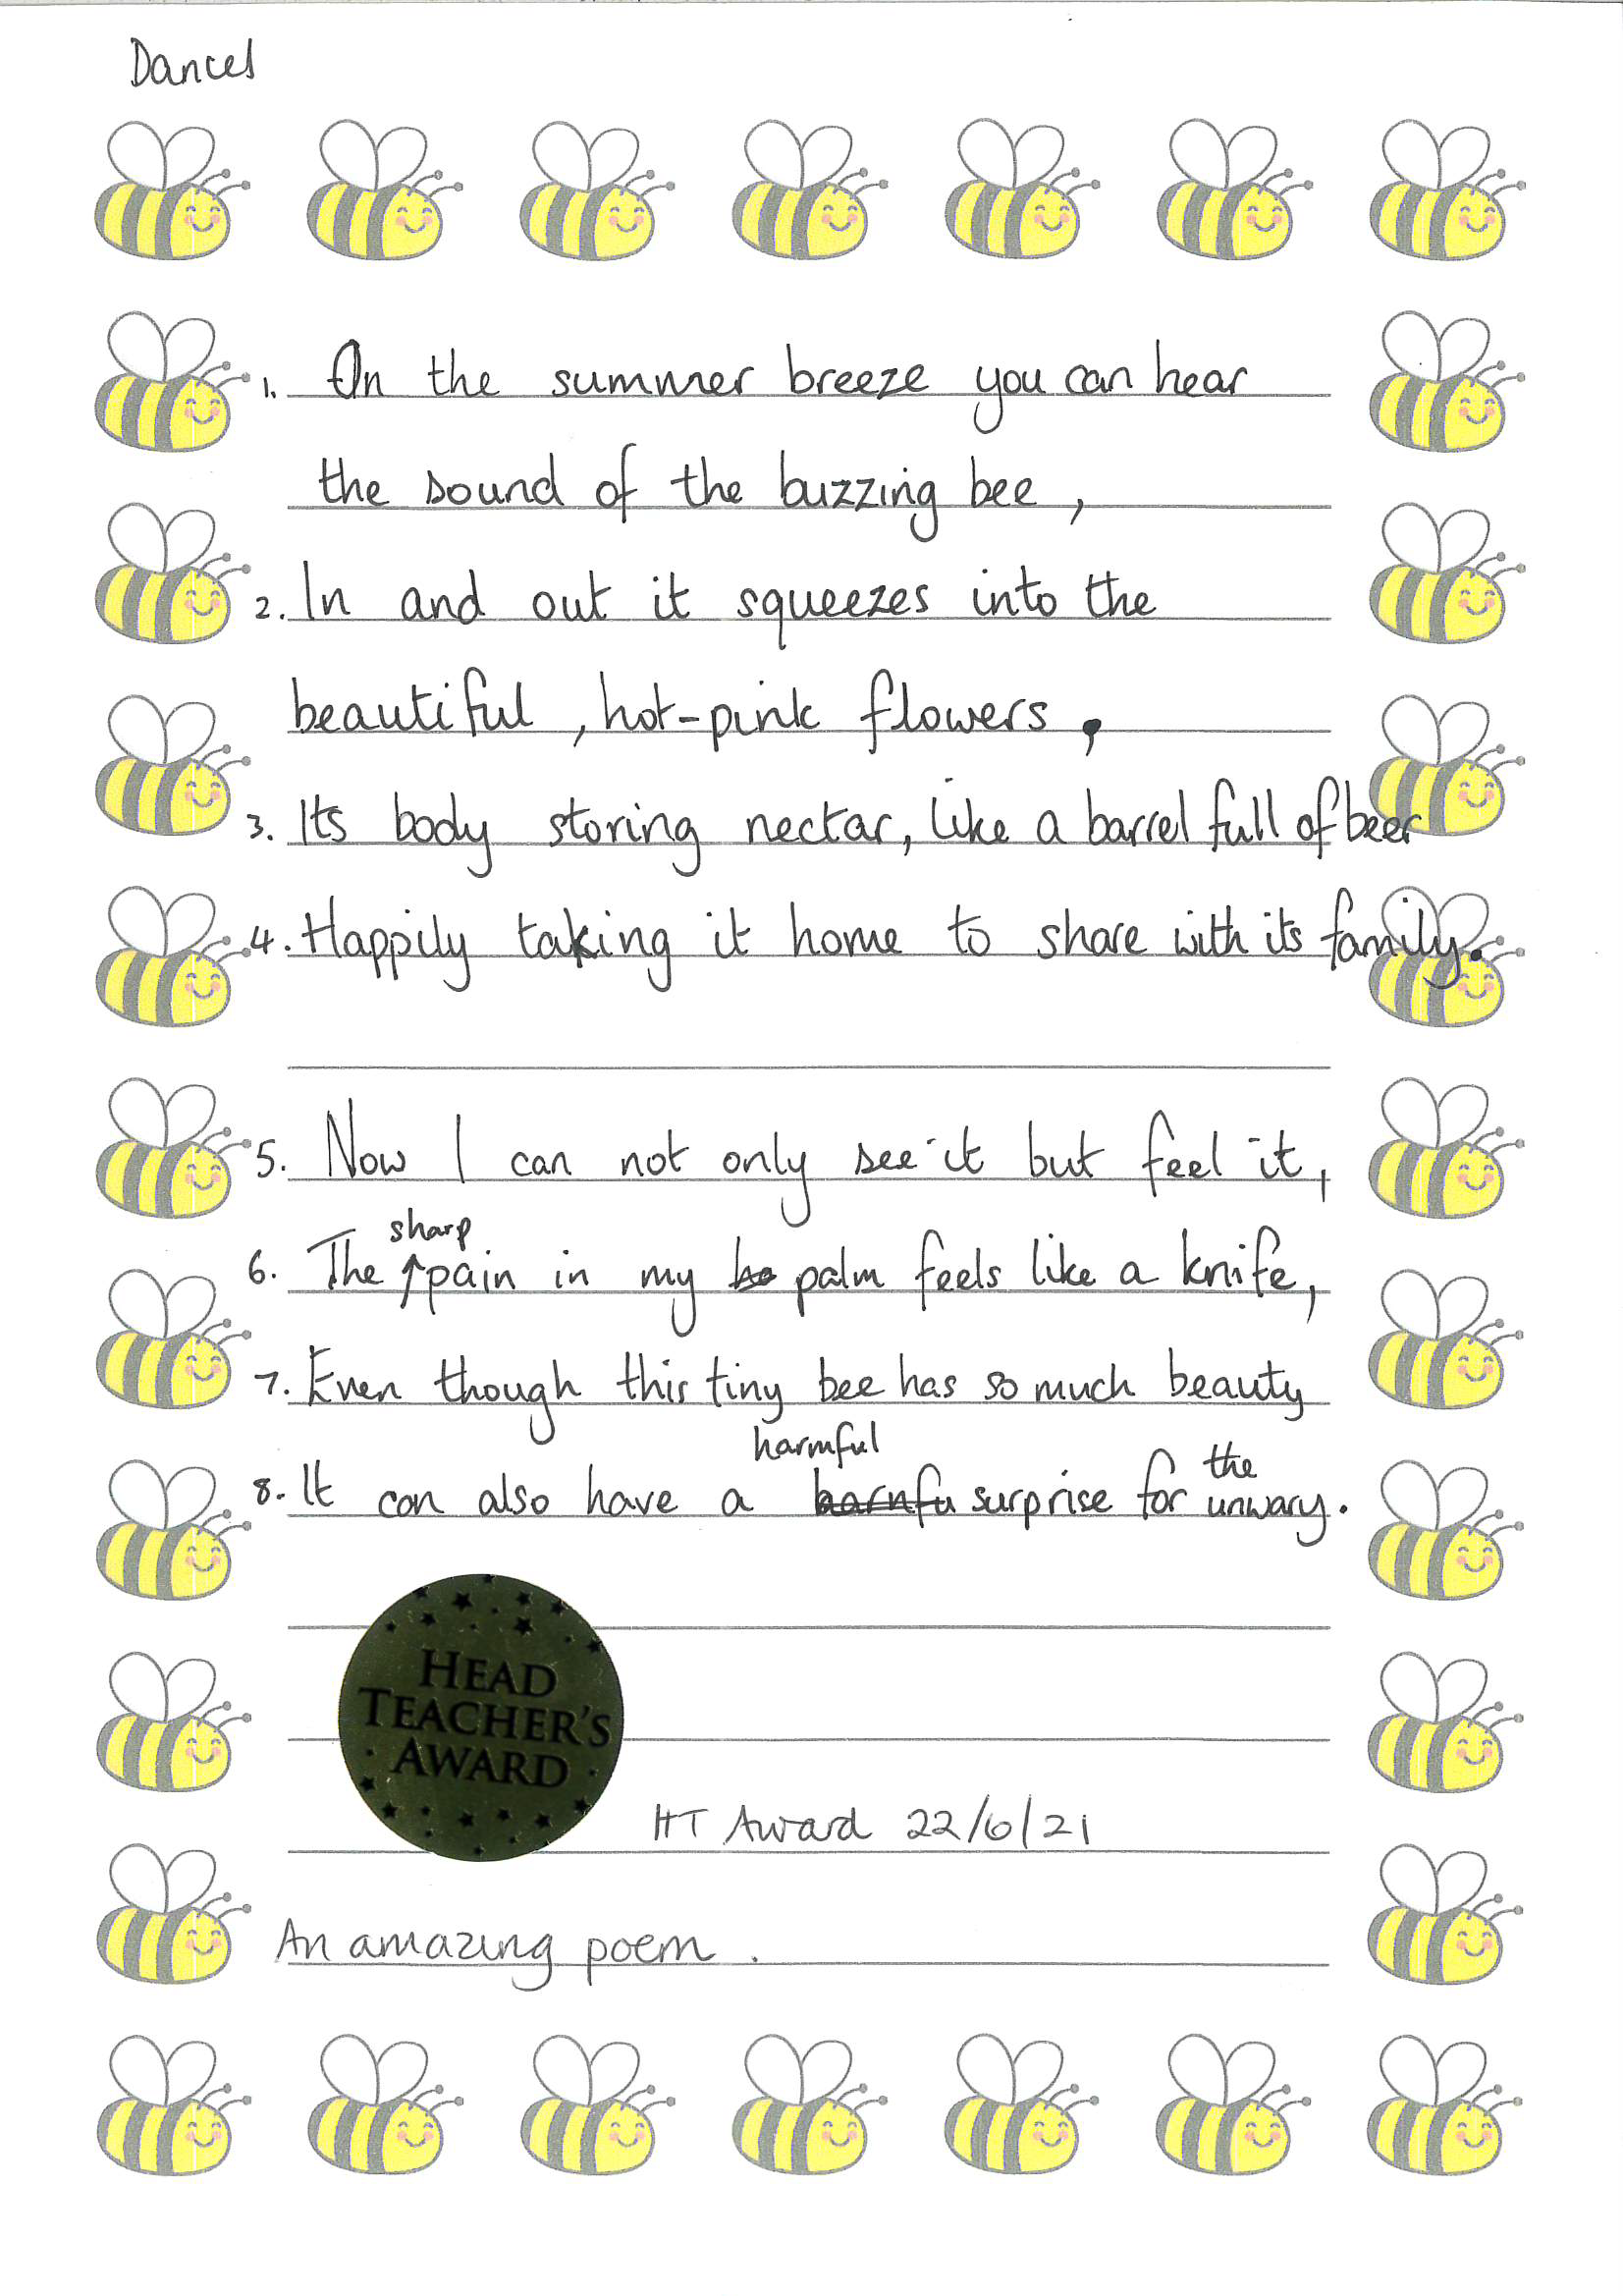 Dancel
1. On the summer breeze you can hear
the sound of the buzzing bee,
2. In and out it squeezes into the
beautiful, hot-pink flowers,
3. Its body storing nectar, like a barrel full of beer
4. Happily taking it home to share with its family.
5. Now I can not only see it but feel it,
sharp
6. The pain in my palm feels like a knife,
7. Even though this tiny bee has so much beauty
harmful
the
8. It can also have a surprise for unwary.
HEAD
TEACHER'S
AWARD
HT Award 22/6/21
An amazing poem.